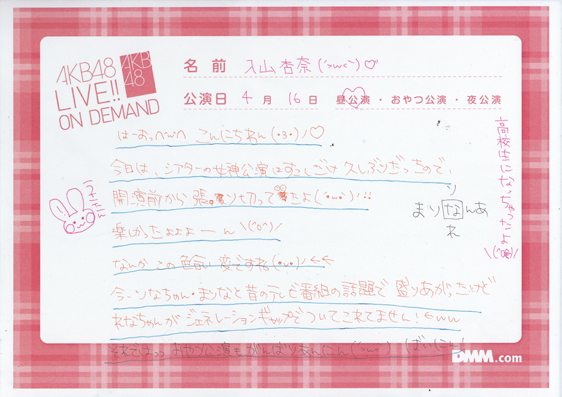 AKB48
LIVE!!
ON DEMAND
AKB
48
名前 入山杏奈(´･ω･`)♡
公演日 4月16日 昼公演・おやつ公演・夜公演
はーおっ こんにちわん(・3・)/♡
今日は、シアターの女神公演はすこしだけ久しぶりだったので、
開演前から張り切って
たよ(・ω・)/!!
楽しかったよょょーん\(^o^)/
なんか この色合い変ですね(・ω・)/
今、りなちゃん・まりなと昔のテレビ番組の話題で盛りあがったけど
れなちゃんがジェネレーションギャップでついてこれてません!←ww
おやつ公演もがんばり
高校生になっちゃったよ\(^o^)/
り
まりなんあ
れ
DMM.com